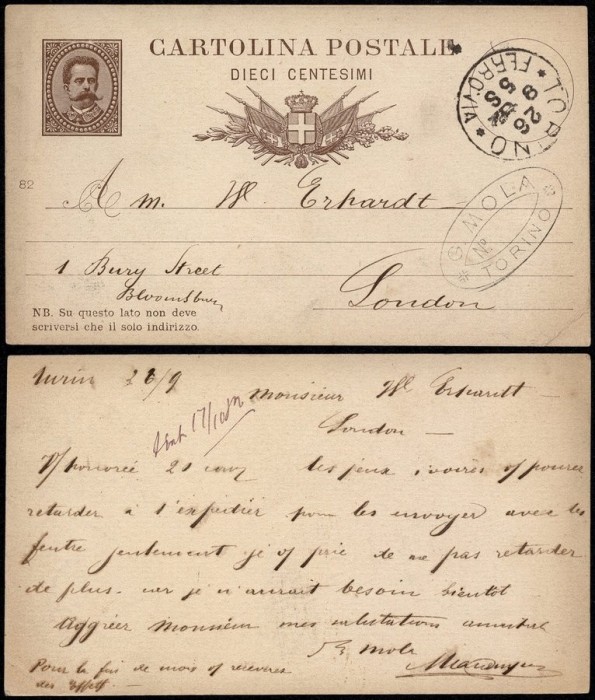 CARTOLINA POSTALE
DIECI CENTESIMI
TORINO
FERROVIA
26 9
5 S
82
G MOLA
No
TORINO
W. Erhardt
1 Bury Street
Bloomsbury
London
NB. Su questo lato non deve
scriversi che il solo indirizzo.
Turin 26/9
Monsieur W Erhardt
London
17/10
honorée 21 les jeux ivoires pouvez
retarder à l'expédier pour les envoyer avec les
feutre je prie de ne pas retarder
de plus car je besoin bientôt
Aggréer Monsieur mes salutations
Mola
Pour la fin de mois recevrez
des Effets